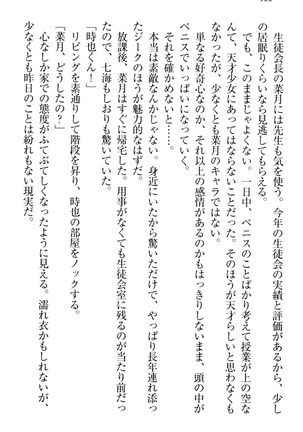 生徒会長の菜月には先生も気を使う。今年の生徒会の実績と評価があるから、少し
の居眠りくらいなら見逃してもらえる。
でも、このままじゃよくない。一日中、ペニスのことばかり考えて授業が上の空な
んて天才少女にはあってはならないことだった。そのほうが天才らしいと思わなくも
なかったが、少なくとも菜月のキャラではない。
単なる好奇心なのか、それ以上の感情があるのかもはっきりしないまま、頭の中が
ペニスでいっぱいになっていく。
それを確かめないと……。
本当は素敵なんかじゃない。身近にいたから驚いただけで、やっぱり長年連れ添っ
たジークのほうが魅力的なはずだ。
放課後、菜月はすぐに帰宅した。用事がなくても生徒会室に残るのが当たり前だっ
たので、七海もしおりも驚いていた。
「時也くん！」
リビングを素通りして階段を昇り、時也の部屋をノックする。
「菜月、どうしたの？」
心なしか家での態度がふてぶてしくなったように見える。濡れ衣かもしれないが、
少なくとも昨日のことは紛れもない現実だ。